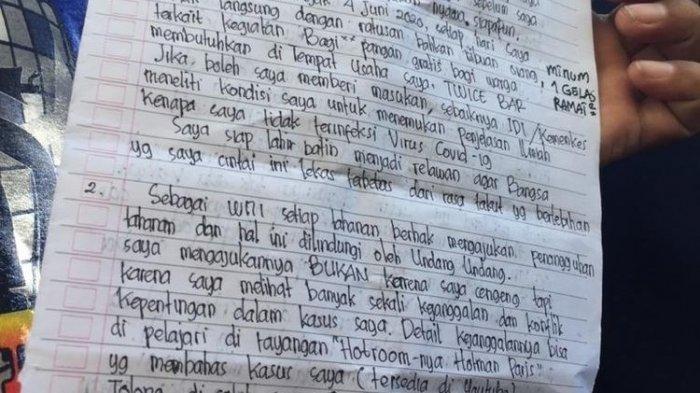 sebelum saya
nyoba, siapapun,
langsung dengan 4 Juni 2020, setiap hari saya
terkait kegiatan ratusan bahkan ribuan orang,
Bagi" pangan gratis bagi warga
membutuhkan di Tempat Usaha saya, TWICE BAR
minum
1 GELAS
RAMAI²
Jika boleh saya memberi masukan, sebaiknya IDI/Kemenkes
meneliti kondisi saya untuk menemukan penjelasan ilmiah
kenapa saya tidak terinfeksi Virus Covid-19
Saya siap lahir batin menjadi relawan agar Bangsa
yg saya cintai ini lekas terbebas dari rasa takut yg berlebihan
2. Sebagai WNI setiap tahanan berhak mengajukan penangguhan
tahanan dan hal ini dilindungi oleh Undang Undang.
saya mengajukannya BUKAN karena saya cengeng tapi
karena saya melihat banyak sekali keganggalan dan konflik
kepentingan dalam kasus saya. Detail keganggalannya bisa
di pelajari di tayangan "Hotroom-nya Hotman Paris"
yg membahas kasus saya (tersedia di Youtube)
Tolong